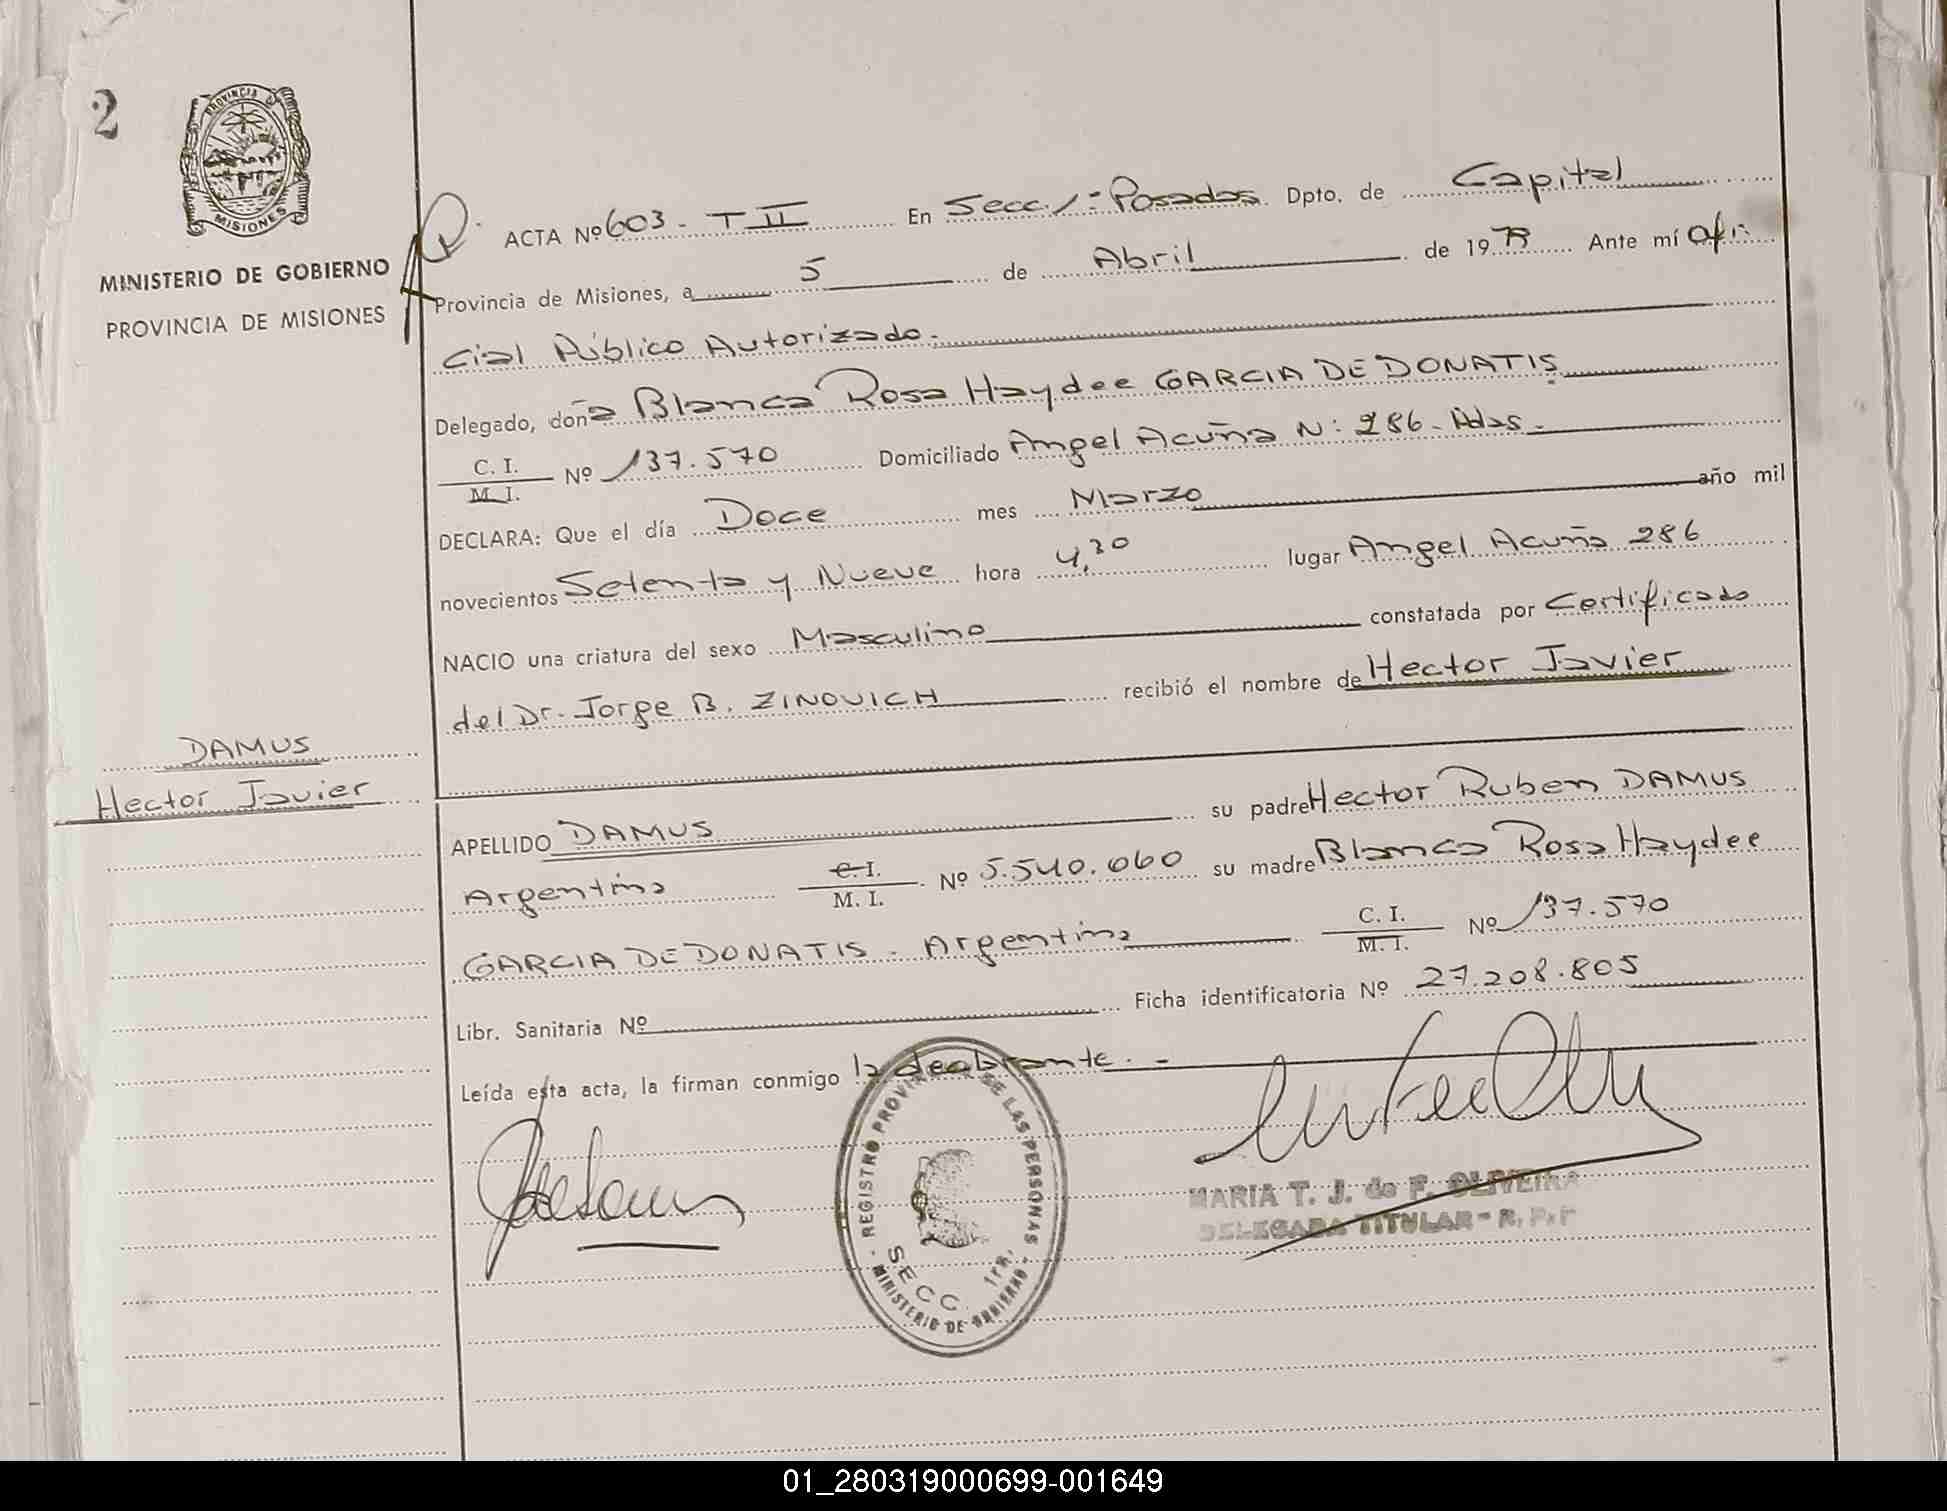 2
PROVINCIA D
MISIONES
MINISTERIO DE GOBIERNO
PROVINCIA DE MISIONES
ACTA Nº 603 - T II En Secc 1ª Posadas Dpto. de Capital
Provincia de Misiones, a 5 de Abril de 1979 Ante mí Ofi
cial Público Autorizado.
Delegado, doña Blanca Rosa Haydee GARCIA DE DONATIS
C. I.
M. I.
Nº 137.570 Domiciliado Angel Acuña N: 286 - Pdas.
DECLARA: Que el día Doce mes Marzo año mil
novecientos Setenta y Nueve hora 4,30 lugar Angel Acuña 286
NACIO una criatura del sexo Masculino constatada por Certificado
del Dr. Jorge B. ZINOVICH recibió el nombre de Hector Javier
DAMUS
Hector Javier
APELLIDO DAMUS su padre Hector Ruben DAMUS
Argentino C. I. M. I. Nº 5.540.060 su madre Blanca Rosa Haydee
GARCIA DE DONATIS - Argentina C. I. M. I. Nº 137.570
Libr. Sanitaria Nº Ficha identificatoria Nº 27.208.805
Leída esta acta, la firman conmigo la declarante. -
REGISTRO PROVINCIAL DE LAS PERSONAS
SECC. 1ra.
MINISTERIO DE GOBIERNO
MARIA T. J. de F. OLIVEIRA
DELEGADA TITULAR - R. P. P
01_280319000699-001649